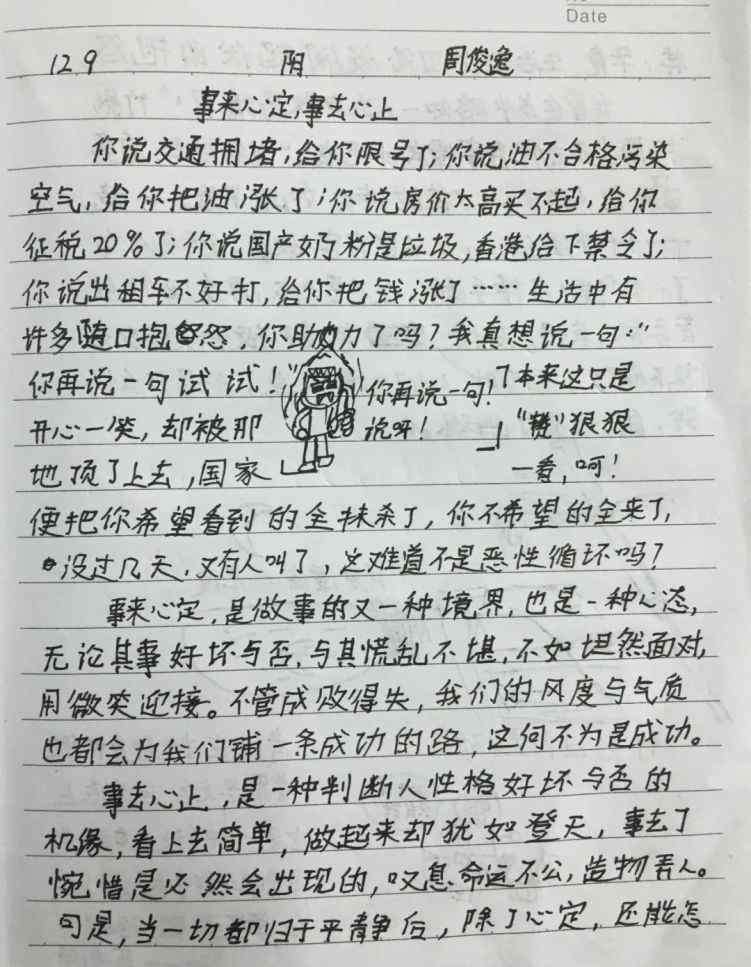 Date
129 阴 周俊逸
事来心定,事去心止
你说交通拥堵,给你限号了;你说油不合格污染
空气,给你把油涨了;你说房价太高买不起,给你
征税20%了;你说国产奶粉是垃圾,香港给下禁令了;
你说出租车不好打,给你把钱涨了……生活中有
许多随口抱怨,你助力了吗?我真想说一句:“
你再说一句试试!” 你再说一句! 了本来这只是
开心一笑,却被那 说呀! “赞”狠狠
地顶了上去,国家 一看,呵!
便把你希望看到的全抹杀了,你不希望的全来了,
没过几天,又有人叫了,这难道不是恶性循环吗?
事来心定,是做事的又一种境界,也是一种心态,
无论其事好坏与否,与其慌乱不堪,不如坦然面对,
用微笑迎接。不管成败得失,我们的风度与气质
也都会为我们铺一条成功的路,这何不为是成功。
事去心止,是一种判断人性格好坏与否的
机缘,看上去简单,做起来却犹如登天,事去了
惋惜是必然会出现的,叹息命运不公,造物弄人。
可是,当一切都归于平静后,除了心定,还能怎